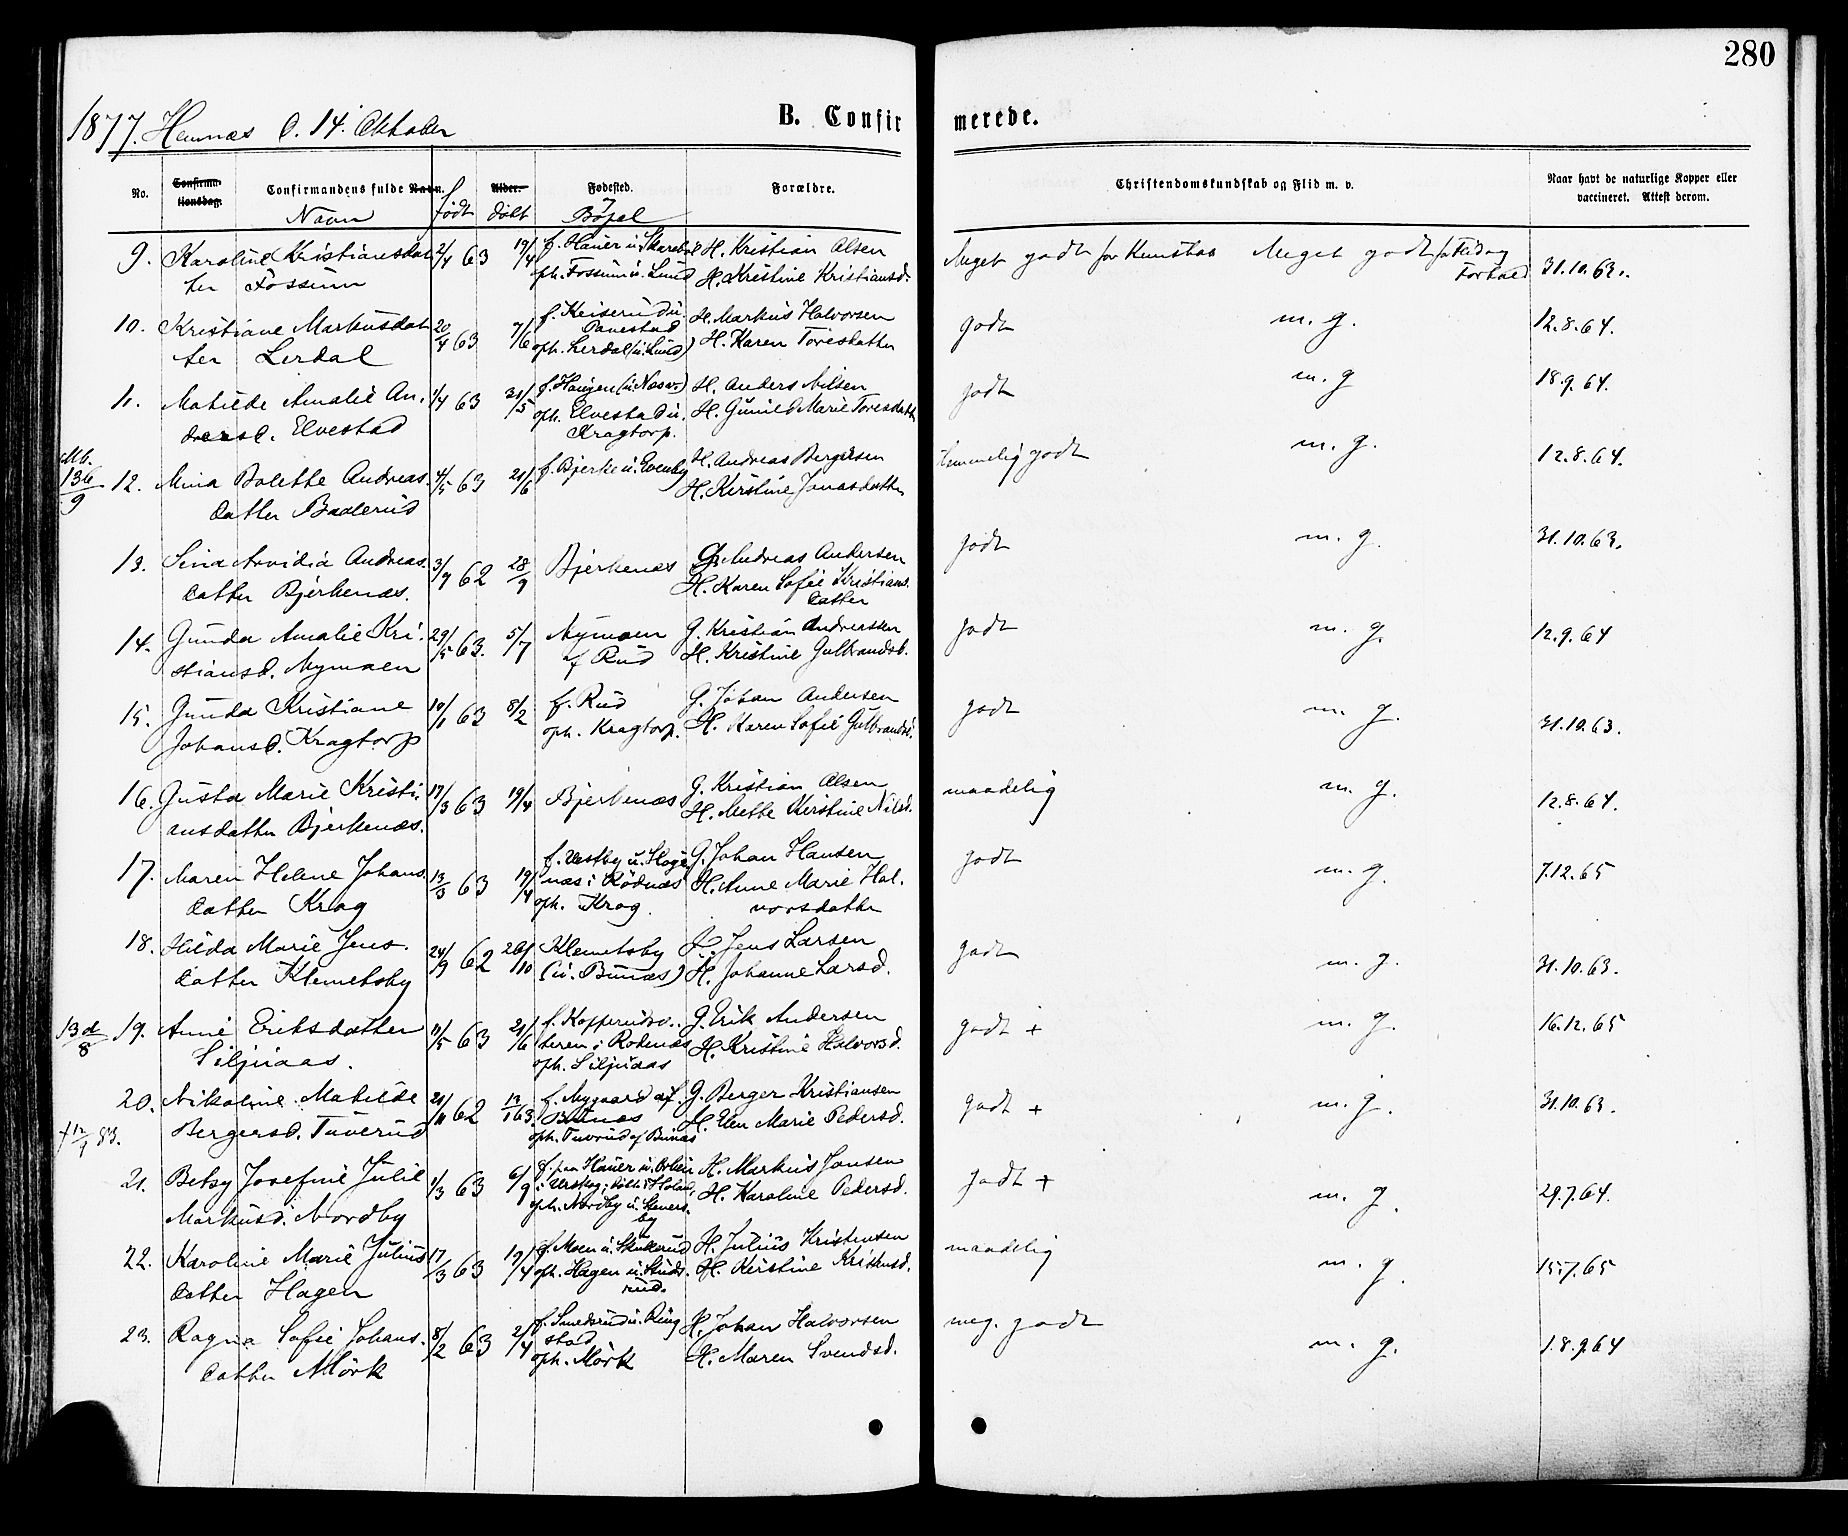 280
1877. Hemnæs d. 14. Oktober
B. Confirmerede.
No. Confirmationsdag. Confirmandens fulde Navn. Født Alder. Fødested. Forældre. Christendomskundskab og Flid m. v. Naar havt de naturlige Kopper eller vaccineret. Attest derom.
Navn døbt Bopel
9. Karoline Kristiansdat 2/4 63 19/4 f. Hauer u. H. Kristian Olsen Meget godt for Kundskab Meget godt for Flid og
ter Fossum oph. Fossum u. Lund H. Kristine Kristiansd. Forhold 31.10.63.
10. Kristiane Markusdat 20/4 63 7/6 f. Keiserud u. H. Markus Halvorsen godt m. g. 12.8.64.
ter Lerdal oph. Lerdal (u. Lund) H. Karen Toresdatter
11. Matilde Amalie An- 1/4 63 21/5 f. Haugen (u. Næs) H. Anders Nilsen godt m. g 18.9.64.
dersd. Elvestad oph. Elvestad u. H. Gunild Marie Toresdatt
Kragtorp.
Mb.
136/9 12. Mina Bolette Andreas 4/5 63 21/6 f. Bjerke u. Evenby H. Andreas Bergersen temmelig godt m. g. 12.8.64.
datter Baalerud H. Kirstine Jonasdatter
13. Sina Arvidia Andreas 3/9 62 28/9 Bjerkenæs G. Andreas Andersen godt m. g. 31.10.63.
datter Bjerkenæs. H. Karen Sofie Kristians
datter
14. Gunda Amalie Kri- 29/5 63. 5/7 Nymoen G. Kristian Andreassen godt m. g. 12.9.64
stiansd. Nymoen af Rud H. Kristine Gulbrandsd.
15. Gunda Kristiane 10/1 63 8/2 f. Rud G. Johan Andersen godt m. g. 31.10.63.
Johansd. Kragtorp oph. Kragtorp. H. Karen Sofie Gulbrandsd.
16. Gusta Marie Kristi- 17/3 63 19/4 Bjerkenæs G. Kristian Olsen maadelig m. g. 12.8.64.
ansdatter Bjerkenæs. H. Mette Kirstine Nilsd.
17. Maren Helene Johans 13/3 63 19/4 f. Vestby u. G. Johan Hansen godt m. g. 7.12.65
datter Krog næs i Rødnæs H. Anne Marie Hal-
oph. Krog. vorsdatter
18. Hilda Marie Jens- 24/9 62 26/10 Klemetsby Jens Larsen godt m. g. 31.10.63.
datter Klemetsby (u. Bunæs) H. Johanne Larsd.
13d/8 19. Anne Eriksdatter 11/5 63 21/6 f. Kopperud G. Erik Andersen godt + m. g. 16.12.65
Siljuaas. teren i Rødenæs H. Kristine Halvorsd.
oph. Siljuaas
20. Nikoline Matilde 21/11 62 12/1 63 f. Nygaard af. G. Berger Kristiansen godt + m. g. 31.10.63.
† 12/1 83. Bergersd. Tuverud Bunæs H. Elen Marie Pedersd.
oph. Tuverud af Bunæs
21. Betsy Josefine Julie 1/3 63 6/9 f. paa Hauer u. H. Markus Jonsen godt + m. g. 29.7.64.
Markusd. Nordby i Urskog; døbt i Høland, H. Karoline Pedersd.
oph. Nordby u.
by
22. Karoline Marie Julius 17/3 63 19/4 f. Moen u. Skullerud H. Julius Kristensen maadelig m. g. 15.7.65
datter Hagen oph. Hagen u. H. Kirstine Kristensd.
rud.
23. Ragna Sofie Johans- 8/2 63 2/4 f. Smedsrud u. Ring H. Johan Halvorsen meg. godt m. g. 18.9.64
datter Mörk stad H. Maren Svendsd.
oph. Mörk